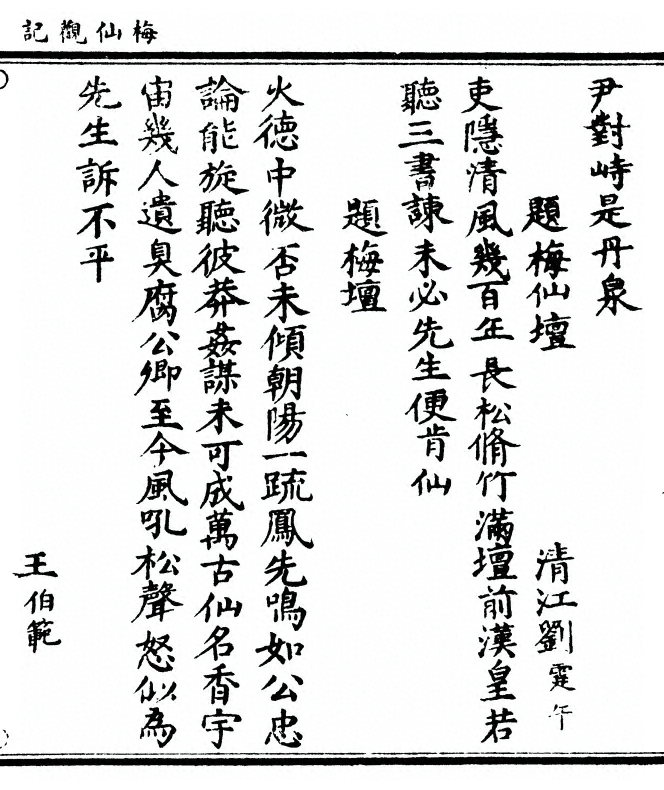 梅仙觀記
尹對峙是丹泉
題梅仙壇
清江劉霆午
吏隱清風幾百年長松脩竹滿壇前漢皇若
聽三書諫未必先生便肯仙
題梅壇
火德中微否未傾朝陽一疏鳳先鳴如公忠
論能旋聽彼莽姦謀未可成萬古仙名香宇
宙幾人遺臭腐公卿至今風吼松聲怒似為
先生訴不平
王伯範